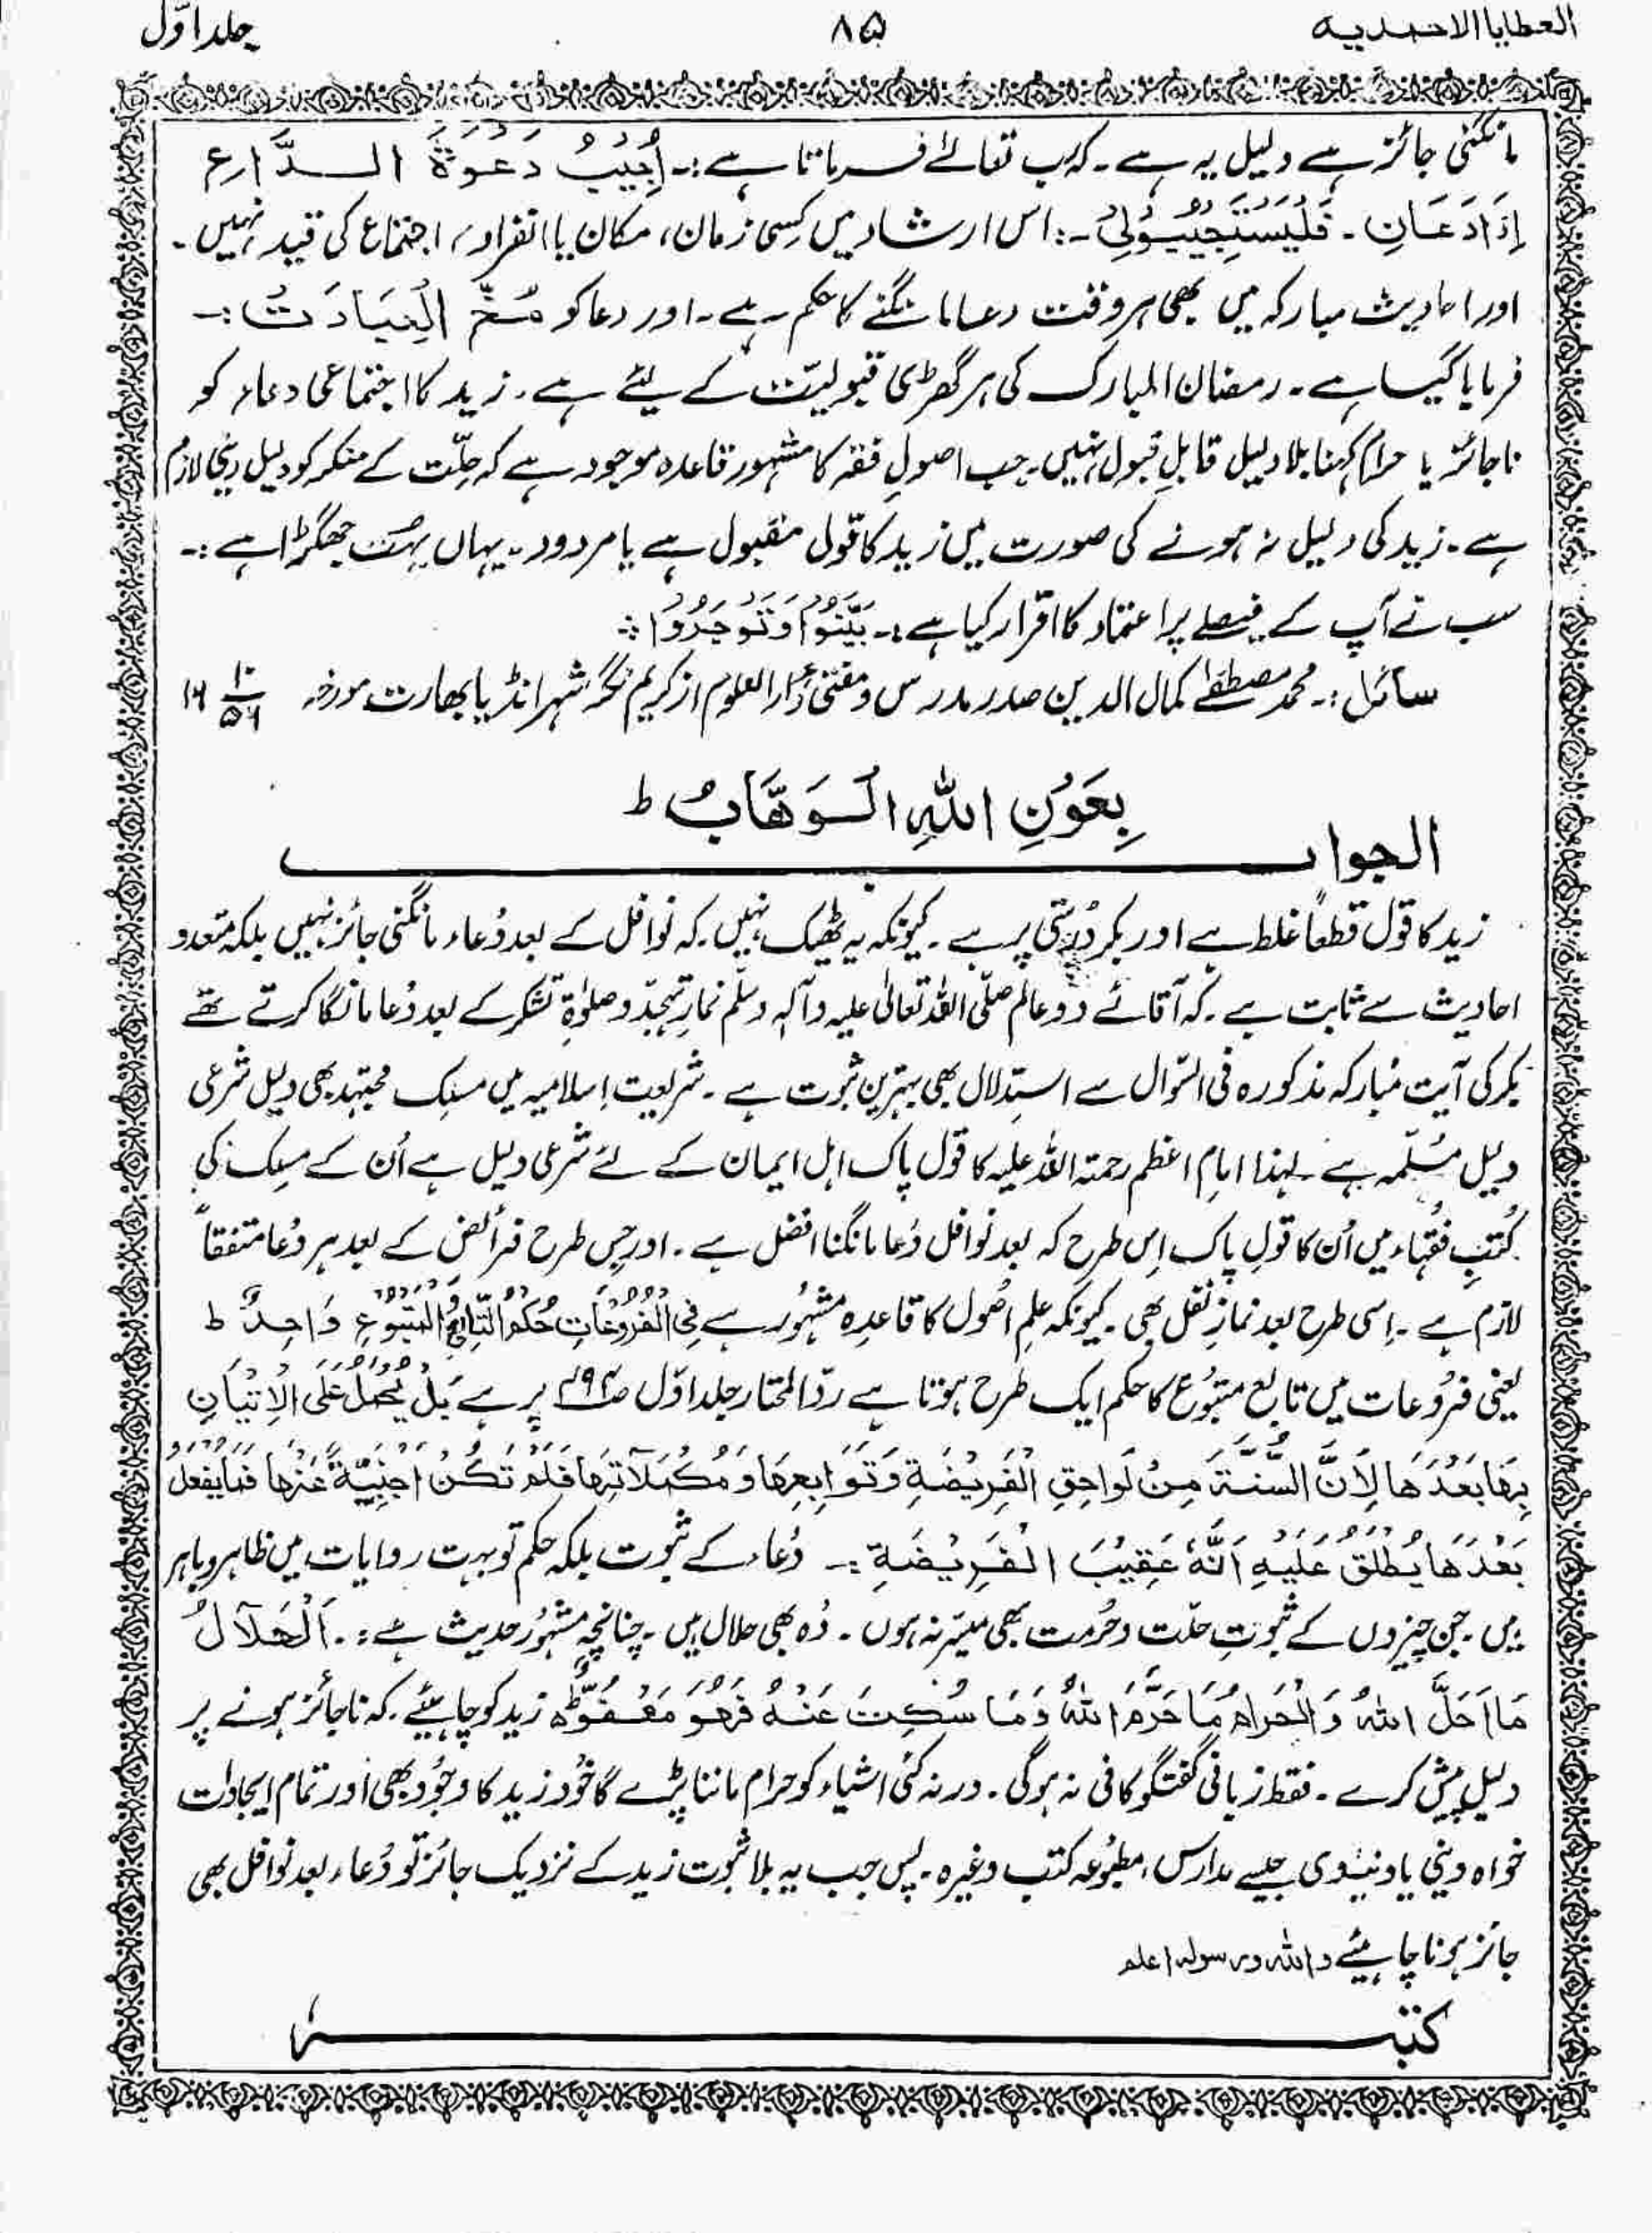 العطایا الاحمدیہ ۸۵ جلد اوّل
مانگنی جائز ہے دلیل یہ ہے۔ کہ رب تعالےٰ فرماتا ہے:۔ اُجِیْبُ دَعْوَةَ الــدَّارِع
اِذَا دَعَـانِ۔ فَلْیَسْتَجِیْبُـوْلِیْ۔: اس ارشاد میں کِسی زمان، مکان یا انفراد، اجتماع کی قید نہیں۔
اور احادیث مبارکہ میں بھی ہر وقت دعا مانگنے کا حکم ہے۔ اور دعا کو مُـخُّ الْعِبَادَتْ:۔
فرمایا گیا ہے۔ رمضان المبارک کی ہر گھڑی قبولیّت کے لیئے ہے۔ زید کا اجتماعی دعاء کو
ناجائز یا حرام کہنا بلا دلیل قابلِ قبول نہیں۔ جب اصولِ فقہ کا مشہور قاعدہ موجود ہے کہ حِلّت کے منکر کو دلیل دینی لازم
ہے۔ زید کی دلیل نہ ہونے کی صورت میں زید کا قول مقبول ہے یا مردود۔ یہاں بہت جھگڑا ہے:۔
سب نے آپ کے فیصلے پر اعتماد کا اقرار کیا ہے:۔ بَیِّنُوْا وَتُوْجَرُوْا ؞
سائل:۔ محمد مصطفےٰ کمال الدین صدر مدرس و مفتیٔ دارالعلوم از کریم نگر شہر انڈیا بھارت مورخہ
بِعَوْنِ اللهِ الْـوَهَّابْ ط
الجواب
زید کا قول قطعاً غلط ہے اور بکر دُرستی پر ہے۔ کیونکہ یہ ٹھیک نہیں۔ کہ نوافل کے بعد دُعاء مانگنی جائز نہیں بلکہ متعدد
احادیث سے ثابت ہے۔ کہ آقائے دو عالم صلّی اللہ تعالیٰ علیہ وآلہٖ وسلّم نمازِ تہجّد و صلوٰةِ تشکر کے بعد دُعا مانگا کرتے تھے
بکر کی آیت مُبارکہ مذکورہ فی السّوال سے استدلال بھی بہترین ثبوت ہے۔ شریعت اِسلامیہ میں مسلکِ مجتہد بھی دلیل شرعی
دلیل مُسلّمہ ہے۔ لہذا امامِ اعظم رحمتہ اللہ علیہ کا قول پاک اہل ایمان کے لئے شرعی دلیل ہے اُن کے مسلک کی
کُتبِ فقُہاء میں اُن کا قولِ پاک اِس طرح کہ بعد نوافل دُعا مانگنا افضل ہے۔ اور جِس طرح فرائض کے بعد ہر دُعا متفقاً
لازم ہے۔ اِسی طرح بعد نمازِ نفل بھی۔ کیونکہ علمِ اُصول کا قاعدہ مشہُور ہے فِی الْفُرُوْعَاتِ حُکْمُ التَّابِعِ وَالْمَتْبُوْعِ وَاحِدٌ ط
یعنی فرُوعات میں تابع متبُوع کا حکم ایک طرح ہوتا ہے ردّ المختار جلد اوّل ص۴۹۴ پر ہے بَلْ یُحْمَلُ عَلَی الْاِتْیَانِ
بِهَا بَعْدَهَا لِاَنَّ السُّنَّةَ مِنْ لَوَاحِقِ الْفَرِیْضَةِ وَتَوَابِعِهَا وَمُکَمِّلَاتِهَا فَلَمْ تَکُنْ اَجْنَبِیَّةً عَنْهَا فَمَا یُفْعَلُ
بَعْدَهَا یُطْلَقُ عَلَیْهِ اَنَّهٗ عَقِیْبَ الْفَرِیْضَةِ:۔ دُعاء کے ثبوت بلکہ حکم تو بہت روایات میں ظاہر و باہر
ہیں۔ جن چیزوں کے ثبوتِ حلّت و حُرمت بھی میسّر نہ ہوں۔ وُہ بھی حلال ہیں۔ چنانچہ مشہُور حدیث ہے:۔ اَلْحَلَالُ
مَا اَحَلَّ اللهُ وَالْحَرَامُ مَا حَرَّمَ اللهُ وَمَا سُکِتَ عَنْهُ فَهُوَ مَعْفُوٌّ ط زید کو چاہیئے۔ کہ ناجائز ہونے پر
دلیل پیش کرے۔ فقط زبانی گفتگو کافی نہ ہوگی۔ ورنہ کئی اشیاء کو حرام ماننا پڑے گا خُود زید کا وجُود بھی اور تمام ایجادات
خواہ دینی یا دنیوی جیسے مدارس، مطبُوعہ کتب وغیرہ۔ پس جب یہ بلا ثبوت زید کے نزدیک جائز تو دُعاء بعد نوافل بھی
جائز ہونا چاہیئے واللہ ورسولہ اعلم
کتبہ